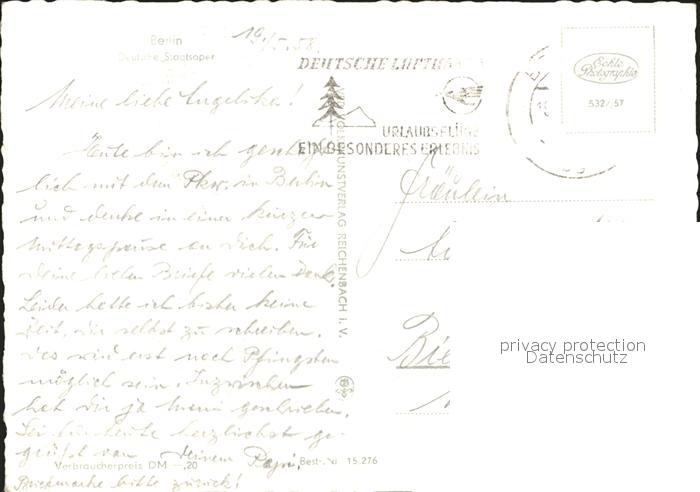 Berlin
Deutsche Staatsoper
19./5.58.
DEUTSCHE LUFTHANSA
URLAUBSFLÜGE
EIN BESONDERES ERLEBNIS
Echte
Photographie
532/57
Meine liebe Angelika!
Heute bin ich geschäft-
lich mit dem Pkw. in Berlin
und denke in einer kurzen
Mittagspause an Dich. Für
Deine lieben Briefe vielen Dank.
Leider hatte ich bisher keine
Zeit, Dir selbst zu schreiben.
Das wird erst nach Pfingsten
möglich sein. Inzwischen
hat Dir ja Mami geschrieben.
Sei für heute herzlichst ge-
grüßt von Deinem Papi.
Briefmarke bitte zurück!
Verbraucherpreis DM -,20
Best.-Nr. 15.276
KUNSTVERLAG REICHENBACH i. V.
Fräulein
Bie
privacy protection
Datenschutz